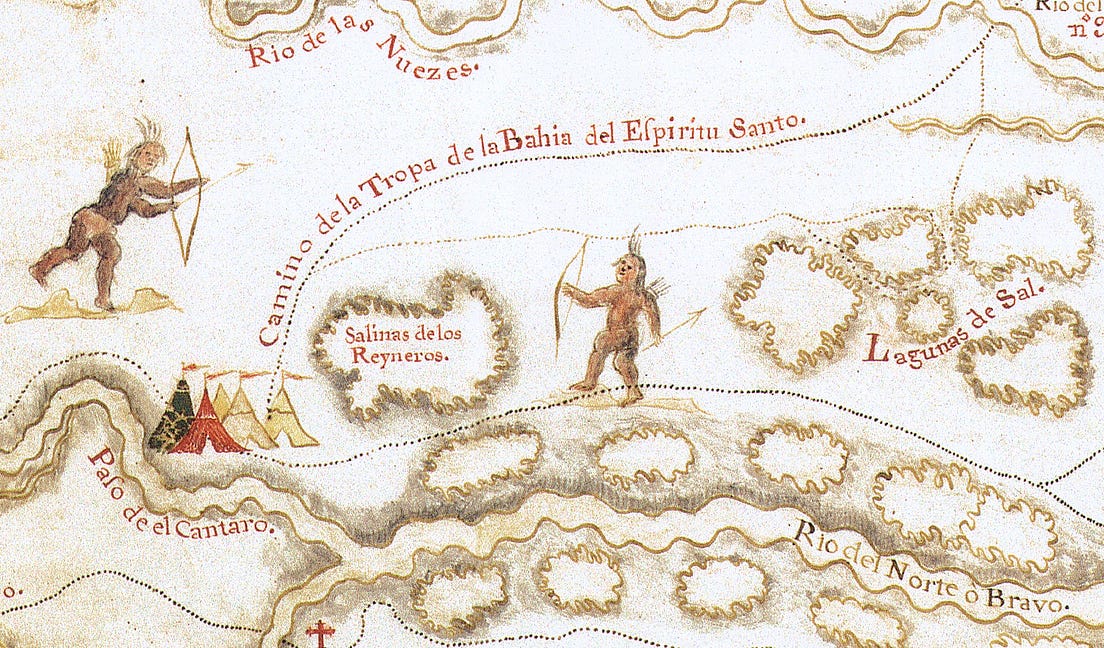 Rio de las Nuezes.
Rio del
nº 9
Camino de la Tropa de la Bahia del Eſpiritu Santo.
Salinas de los
Reyneros.
Lagunas de Sal.
Paſo de el Cantaro.
Rio del Norte ò Bravo.
o.